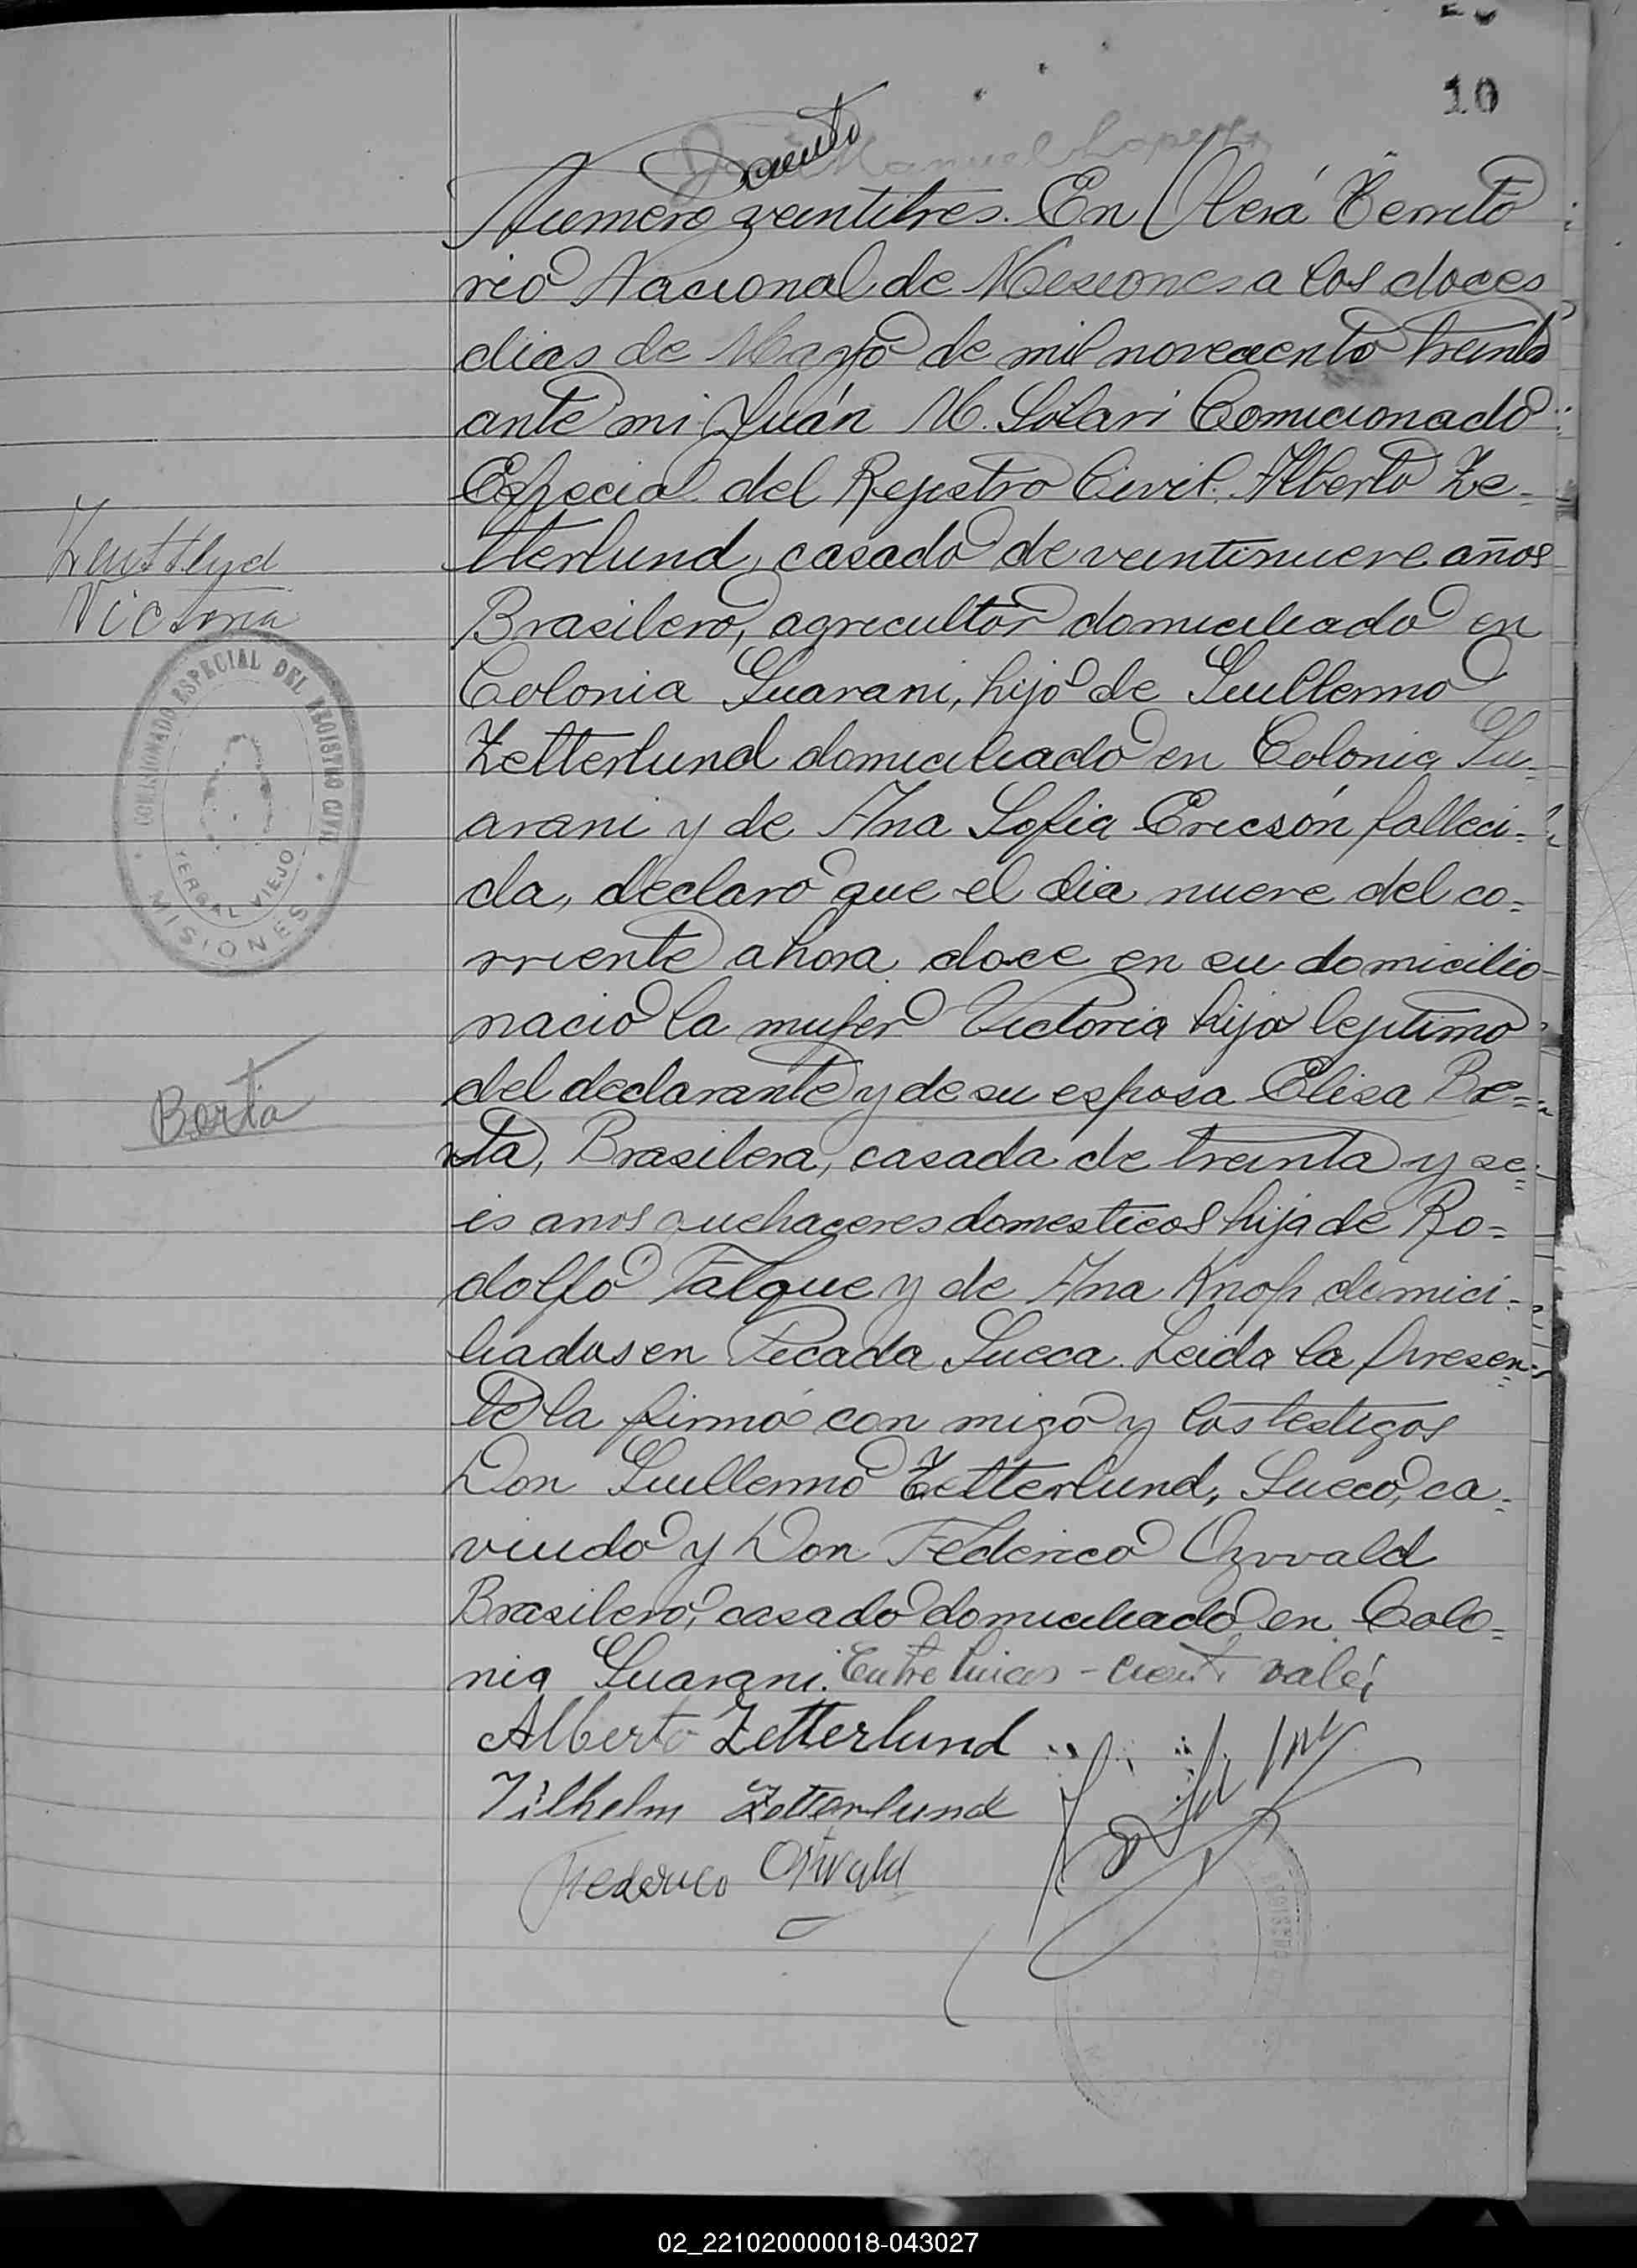 10
ciento
Numero veintitres. En Oberá Territo
rio Nacional de Misiones a los doces
dias de Mayo de mil novecento treinta
ante mi Juán M. Solari Comicionado
Especial del Rejistro Civil. Alberto Ze-
tterlund, casado de veintinueve años
Brasilero, agricultor domiciliado en
Colonia Guarani, hijo de Guillermo
Zetterlund domiciliado en Colonia Gu=
arani y de Ana Sofia Ericsón falleci=
da, declaro que el dia nueve del co=
rriente ahora doce en su domicilio
Victoria
COMISIONADO ESPECIAL DEL REGISTRO CIVIL
YERBAL VIEJO
MISIONES
nació la mujer Victoria hija lejitimo
del declarante y de su esposa Elisa Be=
Berta
rta, Brasilera, casada de treinta y se=
is anos quehaceres domesticos hija de Ro=
dolfo Falque y de Ana Knop dimici=
liados en Picada Sueca. Leida la presen=
te la firmó con migo y los testigos
Don Guillermo Zetterlund, Sueco, ca=
viudo y Don Federico Ozwald
Brasilero, casado domiciliado en Colo=
nia Guarani. Entre lineas - cient vale;
Alberto Zetterlund
Wilhelm Zetterlund
Federico Oswald
02_221020000018-043027